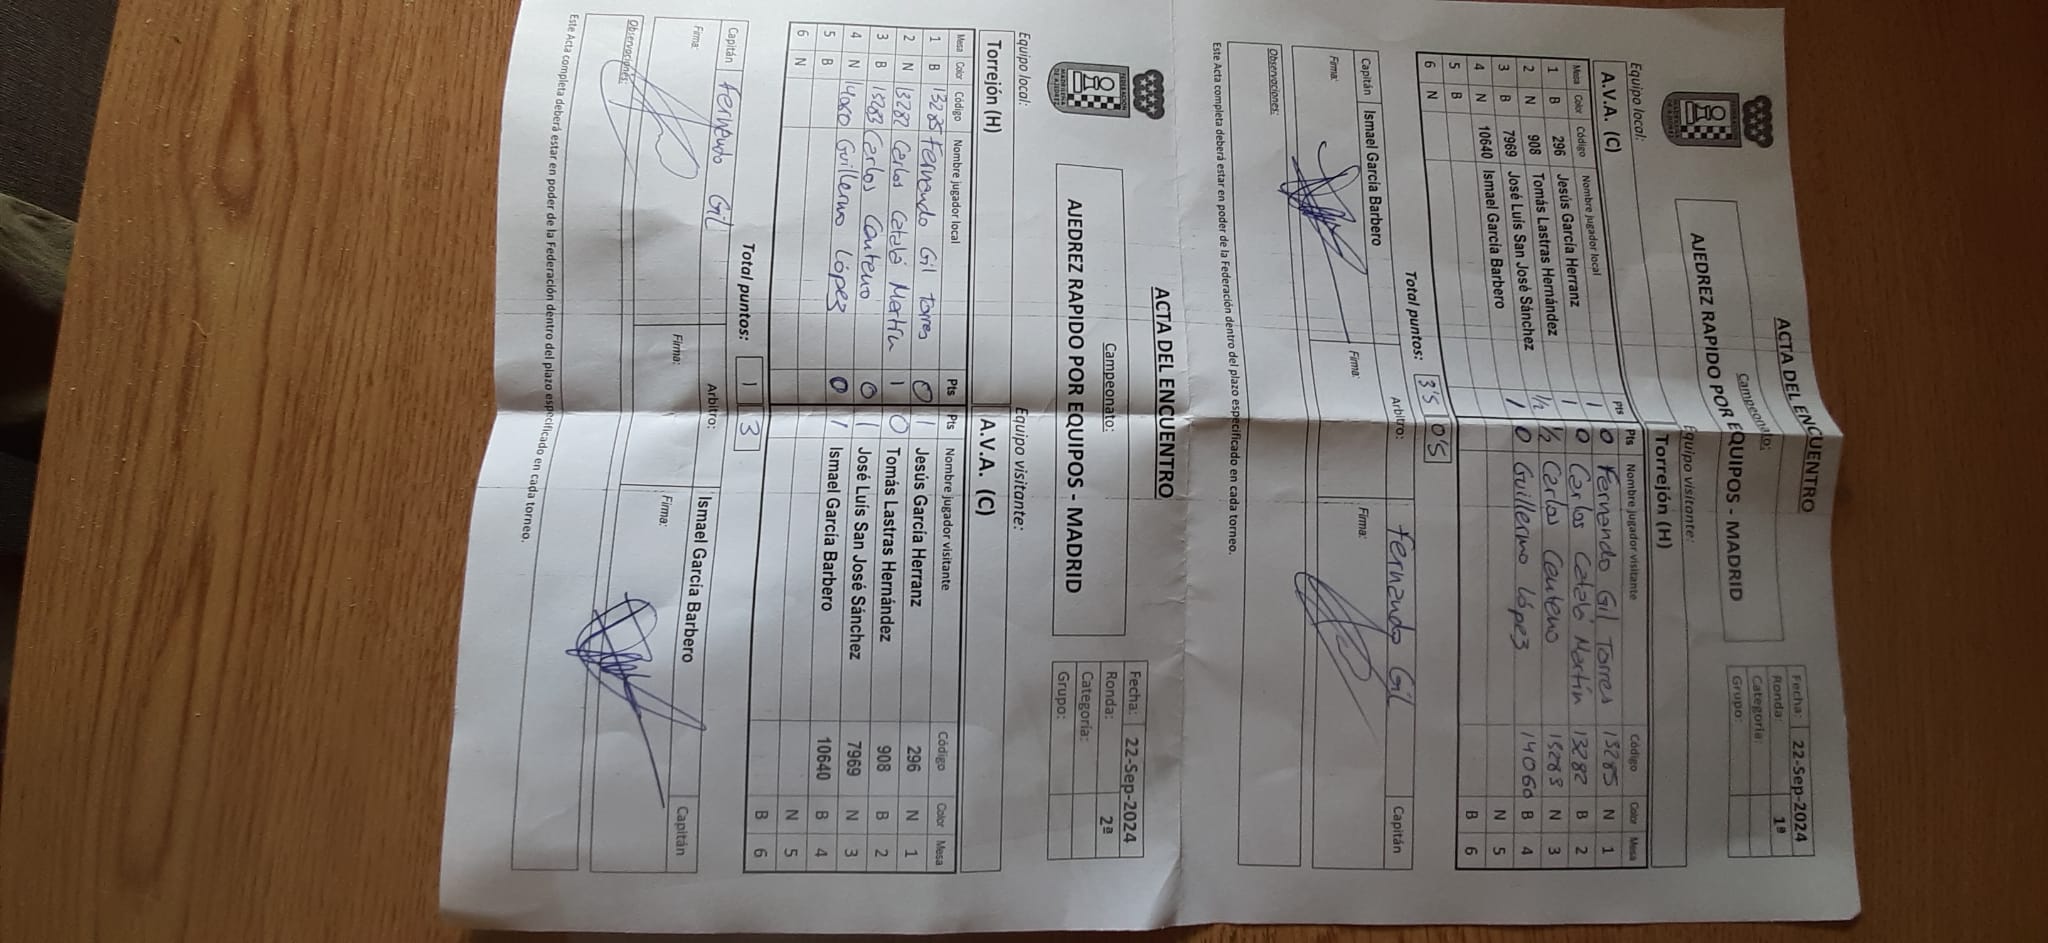 ACTA DEL ENCUENTRO
Campeonato:
AJEDREZ RAPIDO POR EQUIPOS - MADRID
Fecha: 22-Sep-2024
Ronda: 1ª
Categoría:
Grupo:
FEDERACION MADRILEÑA DE AJEDREZ
Equipo local: Equipo visitante:
A.V.A. (C) Torrejón (H)
Mesa Color Código Nombre jugador local Pts Pts Nombre jugador visitante Código Color Mesa
1 B 296 Jesús García Herranz 1 0 Fernando Gil Torres 13285 N 1
2 N 908 Tomás Lastras Hernández 1 0 Carlos Catalá Martín 13282 B 2
3 B 7969 José Luís San José Sánchez 1/2 1/2 Carlos Centeno 15283 N 3
4 N 10640 Ismael García Barbero 1 0 Guillermo López 14060 B 4
5 B N 5
6 N B 6
Total puntos: 3'5 0'5
Capitán Ismael García Barbero Arbitro: Fernando Gil Capitán
Firma: Firma: Firma:
Observaciones:
Este Acta completa deberá estar en poder de la Federación dentro del plazo especificado en cada torneo.
ACTA DEL ENCUENTRO
Campeonato:
AJEDREZ RAPIDO POR EQUIPOS - MADRID
Fecha: 22-Sep-2024
Ronda: 2ª
Categoría:
Grupo:
FEDERACION MADRILEÑA DE AJEDREZ
Equipo local: Equipo visitante:
Torrejón (H) A.V.A. (C)
Mesa Color Código Nombre jugador local Pts Pts Nombre jugador visitante Código Color Mesa
1 B 13285 Fernando Gil Torres 0 1 Jesús García Herranz 296 N 1
2 N 13282 Carlos Catalá Martín 1 0 Tomás Lastras Hernández 908 B 2
3 B 15283 Carlos Centeno 0 1 José Luís San José Sánchez 7969 N 3
4 N 14060 Guillermo López 0 1 Ismael García Barbero 10640 B 4
5 B N 5
6 N B 6
Total puntos: 1 3
Capitán Fernando Gil Arbitro: Ismael García Barbero Capitán
Firma: Firma: Firma:
Observaciones:
Este Acta completa deberá estar en poder de la Federación dentro del plazo especificado en cada torneo.